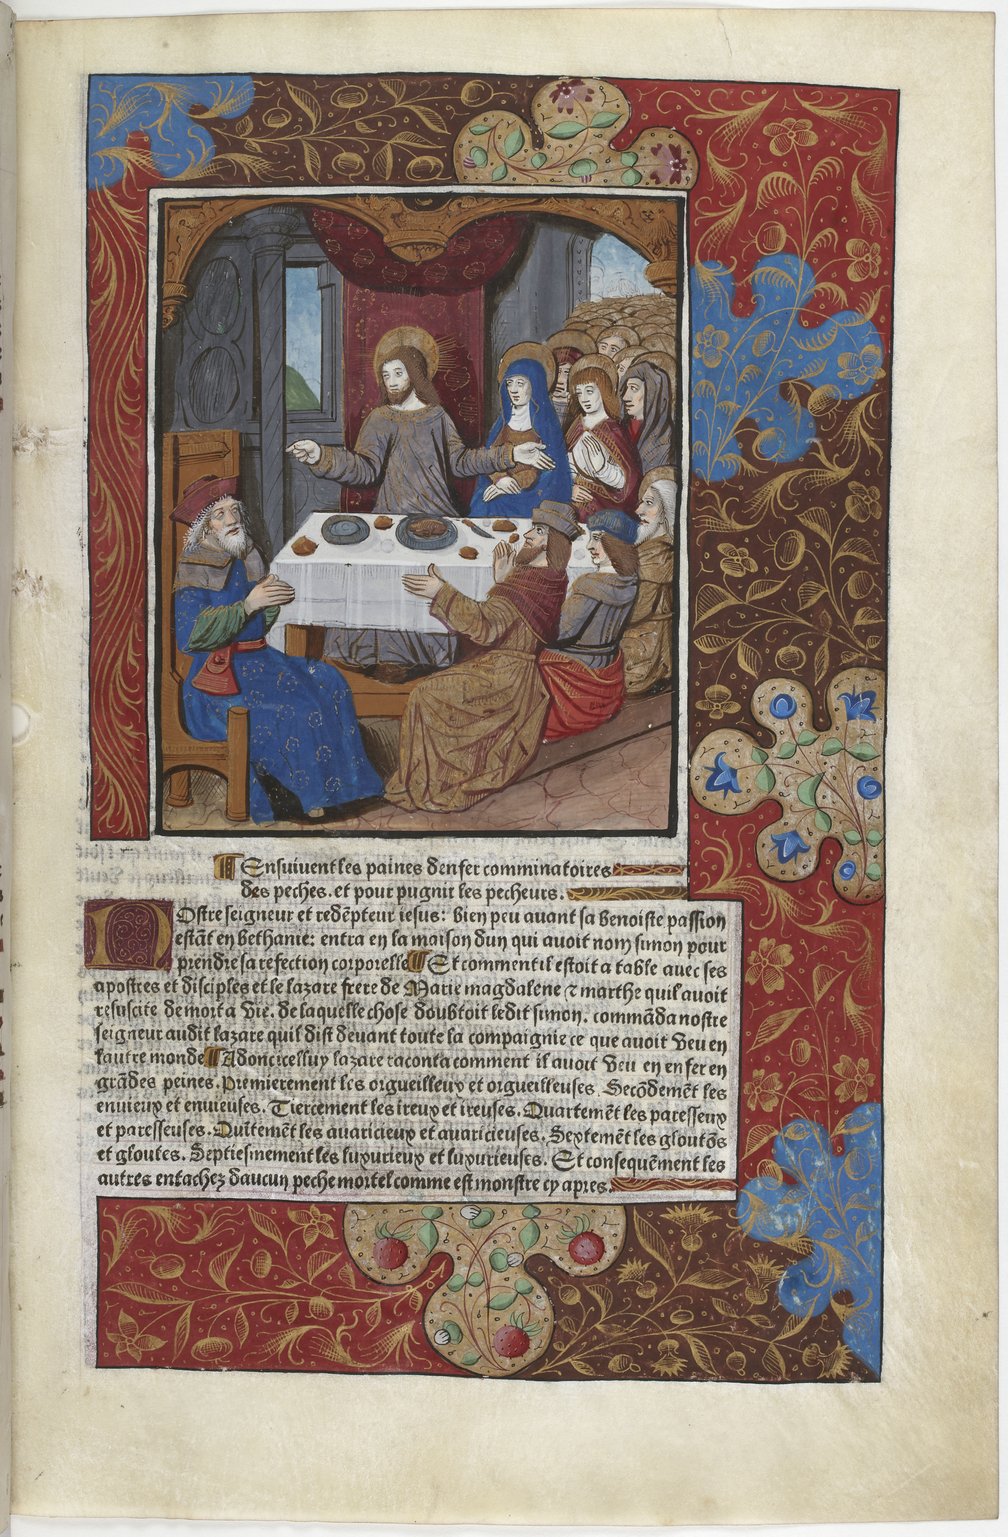 Ensuiuent les paines denfer comminatoires
des peches. et pour pugnir les pecheurs.
Nostre seigneur et redẽpteur iesus: bien peu auant sa benoiste passion
estãt en bethanie: entra en la maison dun qui auoit nom simon pour
prendre sa refection corporelle Et comment il estoit a table auec ses
apostres et disciples et le lazare frere de Marie magdalene ⁊ marthe quil auoit
resuscite de mort a vie. de laquelle chose doubtoit ledit simon. commãda nostre
seigneur audit lazare quil dist deuant toute la compaignie ce que auoit veu en
lautre monde Adonc icelluy lazare raconta comment il auoit veu en enfer en
grãdes peines. Premierement les orgueilleux et orgueilleuses. Secõdemẽt les
enuieux et enuieuses. Tiercement les ireux et ireuses. Quartemẽt les paresseux
et paresseuses. Quĩtemẽt les auaricieux et auaricieuses. Sextemẽt les gloutõs
et gloutes. Septiesmement les luxurieux et luxurieuses. Et consequẽment les
autres entachez daucun peche mortel comme est monstre cy apres.